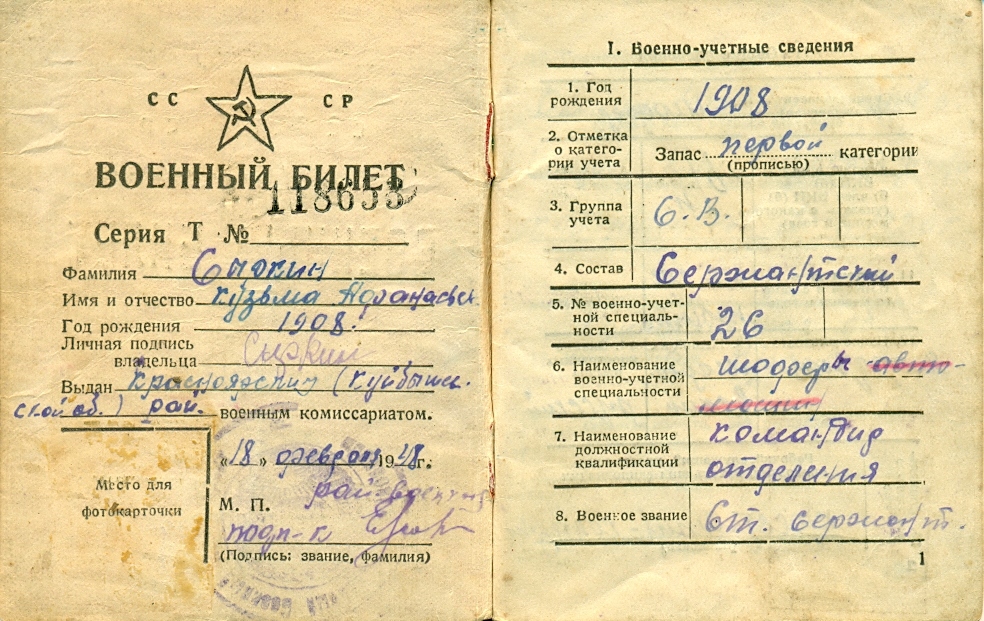 СС СР
ВОЕННЫЙ БИЛЕТ
Серия Т №
Фамилия
Имя и отчество Кузьма Афанасьев.
Год рождения 1908.
Личная подпись
владельца
Выдан (Куйбыше-
ской об.) рай. военным комиссариатом.
Место для
фотокарточки
«18» февраля 1948 г.
М. П. райвоенком
подп-к
(Подпись: звание, фамилия)
I. Военно-учетные сведения
1. Год
рождения 1908
2. Отметка
о катего-
рии учета
Запас первой категории
(прописью)
3. Группа
учета С.В.
4. Состав Сержантский
5. № военно-учет-
ной специаль-
ности 26
6. Наименование
военно-учетной
специальности
шоферы авто-
7. Наименование
должностной
квалификации
командир
отделения
8. Военное звание Ст. сержант.
1